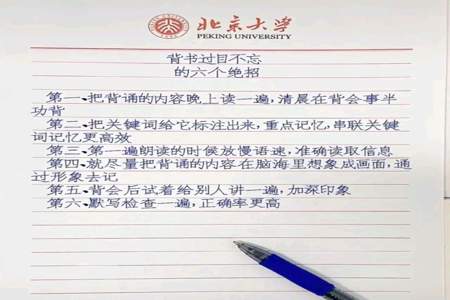 北京大学
PEKING UNIVERSITY
背书过目不忘
的六个绝招
第一、把背诵的内容晚上读一遍,清晨在背会事半
功背
第二、把关键词给它标注出来,重点记忆,串联关键
词记忆更高效
第三、第一遍朗读的时候放慢语速,准确读取信息
第四、就尽量把背诵的内容在脑海里想象成画面,通
过形象去记
第五、背会后试着给别人讲一遍,加深印象
第六、默写检查一遍,正确率更高